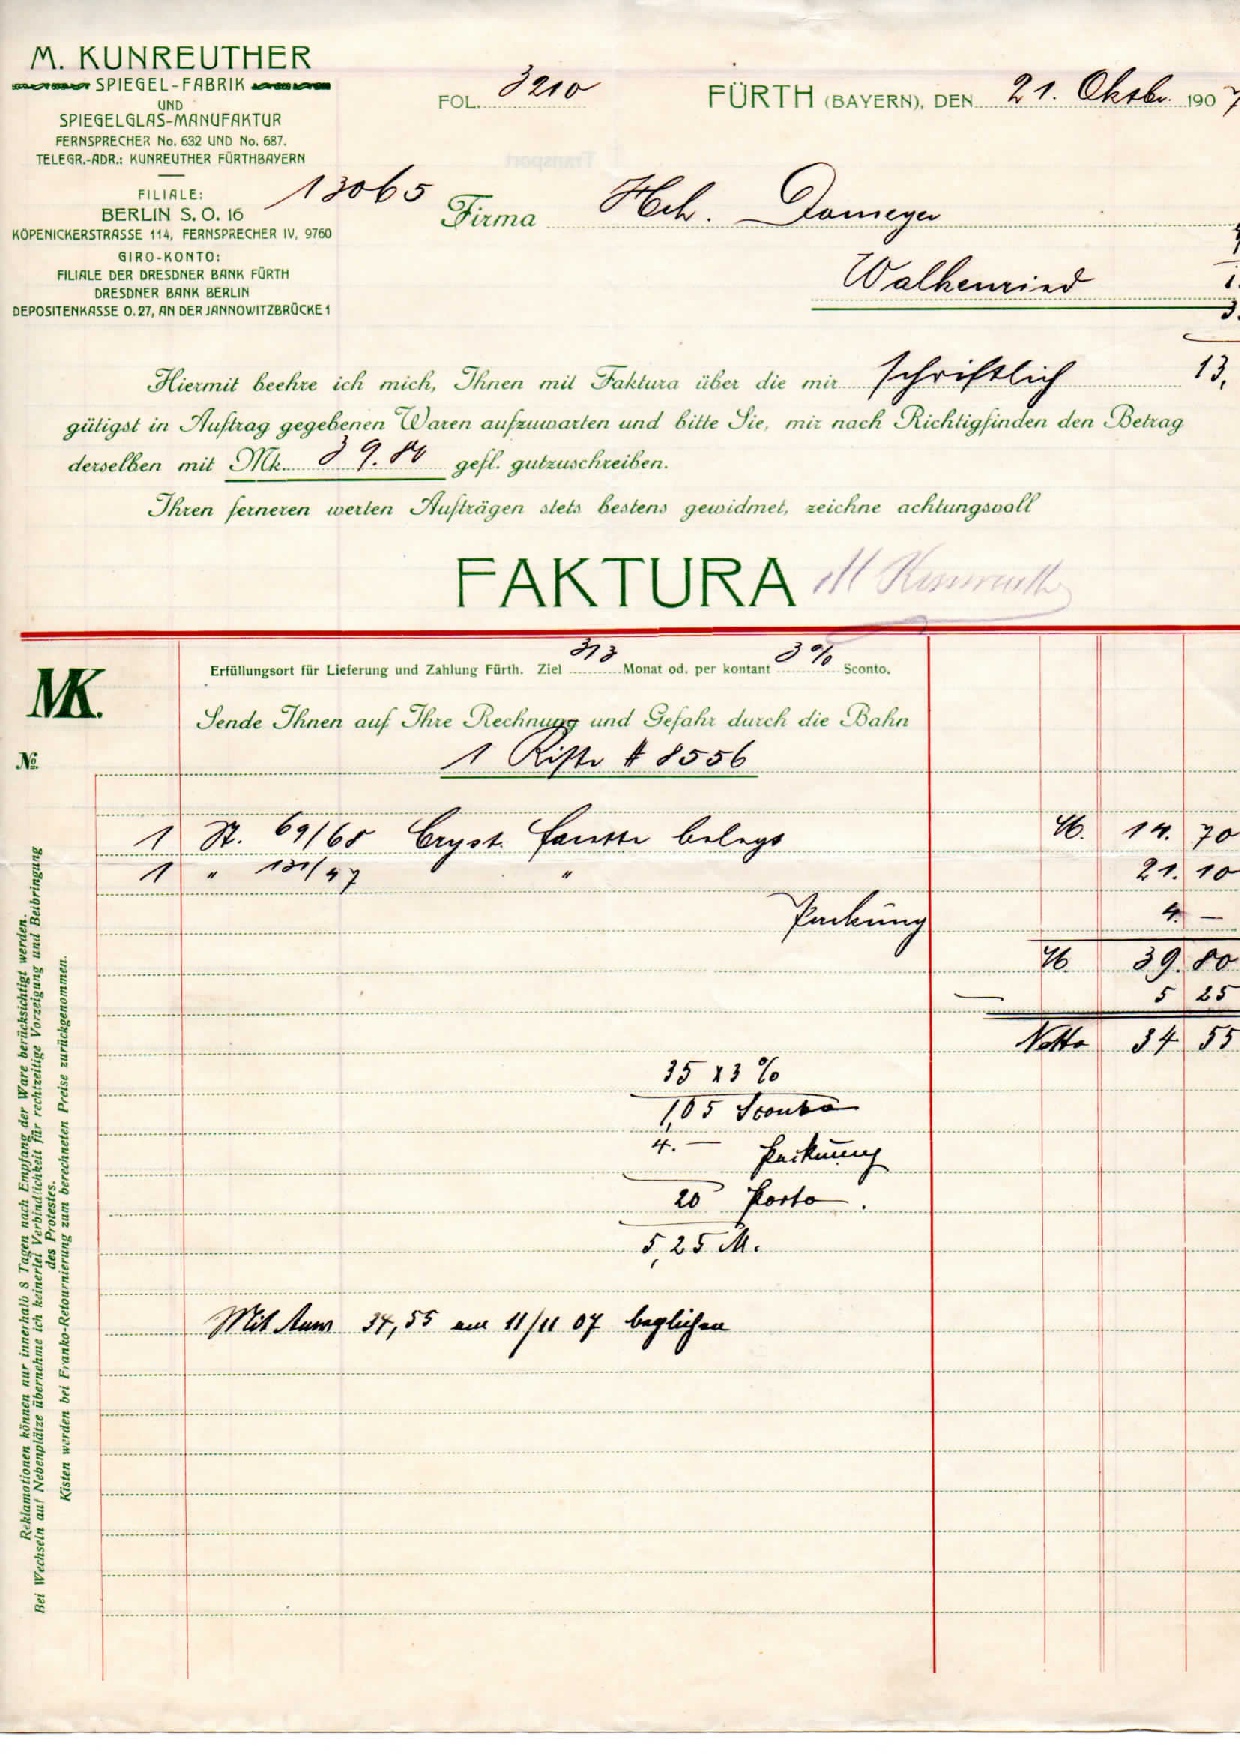 M. KUNREUTHER
SPIEGEL-FABRIK
UND
SPIEGELGLAS-MANUFAKTUR
FERNSPRECHER No. 632 UND No. 687.
TELEGR.-ADR.: KUNREUTHER FÜRTHBAYERN
FILIALE:
BERLIN S. O. 16
KÖPENICKERSTRASSE 114, FERNSPRECHER IV, 9760
GIRO-KONTO:
FILIALE DER DRESDNER BANK FÜRTH
DRESDNER BANK BERLIN
DEPOSITENKASSE O. 27, AN DER JANNOWITZBRÜCKE 1
FOL. 3210
FÜRTH (BAYERN), DEN 21. Oktbr. 1907
13065
Firma Hch. Domeyer
Walkenried
13,
Hiermit beehre ich mich, Ihnen mit Faktura über die mir schriftlich
gütigst in Auftrag gegebenen Waren aufzuwarten und bitte Sie, mir nach Richtigfinden den Betrag
derselben mit Mk. 39.80 gefl. gutzuschreiben.
Ihren ferneren werten Aufträgen stets bestens gewidmet, zeichne achtungsvoll
FAKTURA M Kunreuther
MK.
Erfüllungsort für Lieferung und Zahlung Fürth. Ziel 3/3 Monat od. per kontant 3% Sconto.
Sende Ihnen auf Ihre Rechnung und Gefahr durch die Bahn
No
1 Kiste # 8556
1 St. 69/68 Cryst. facette belegt M. 14. 70
1 " 131/47 " 21. 10
Packung 4. —
M. 39. 80
— 5 25
Netto 34 55
35 x 3 %
1,05 Sconto
4.— Packung
20 Porto.
5,25 M.
Mit Anw 34,55 am 11/11 07 beglichen
Reklamationen können nur innerhalb 8 Tagen nach Empfang der Ware berücksichtigt werden.
Bei Wechseln auf Nebenplätze übernehme ich keinerlei Verbindlichkeit für rechtzeitige Vorzeigung und Beibringung
des Protestes.
Kisten werden bei Franko-Retournierung zum berechneten Preise zurückgenommen.